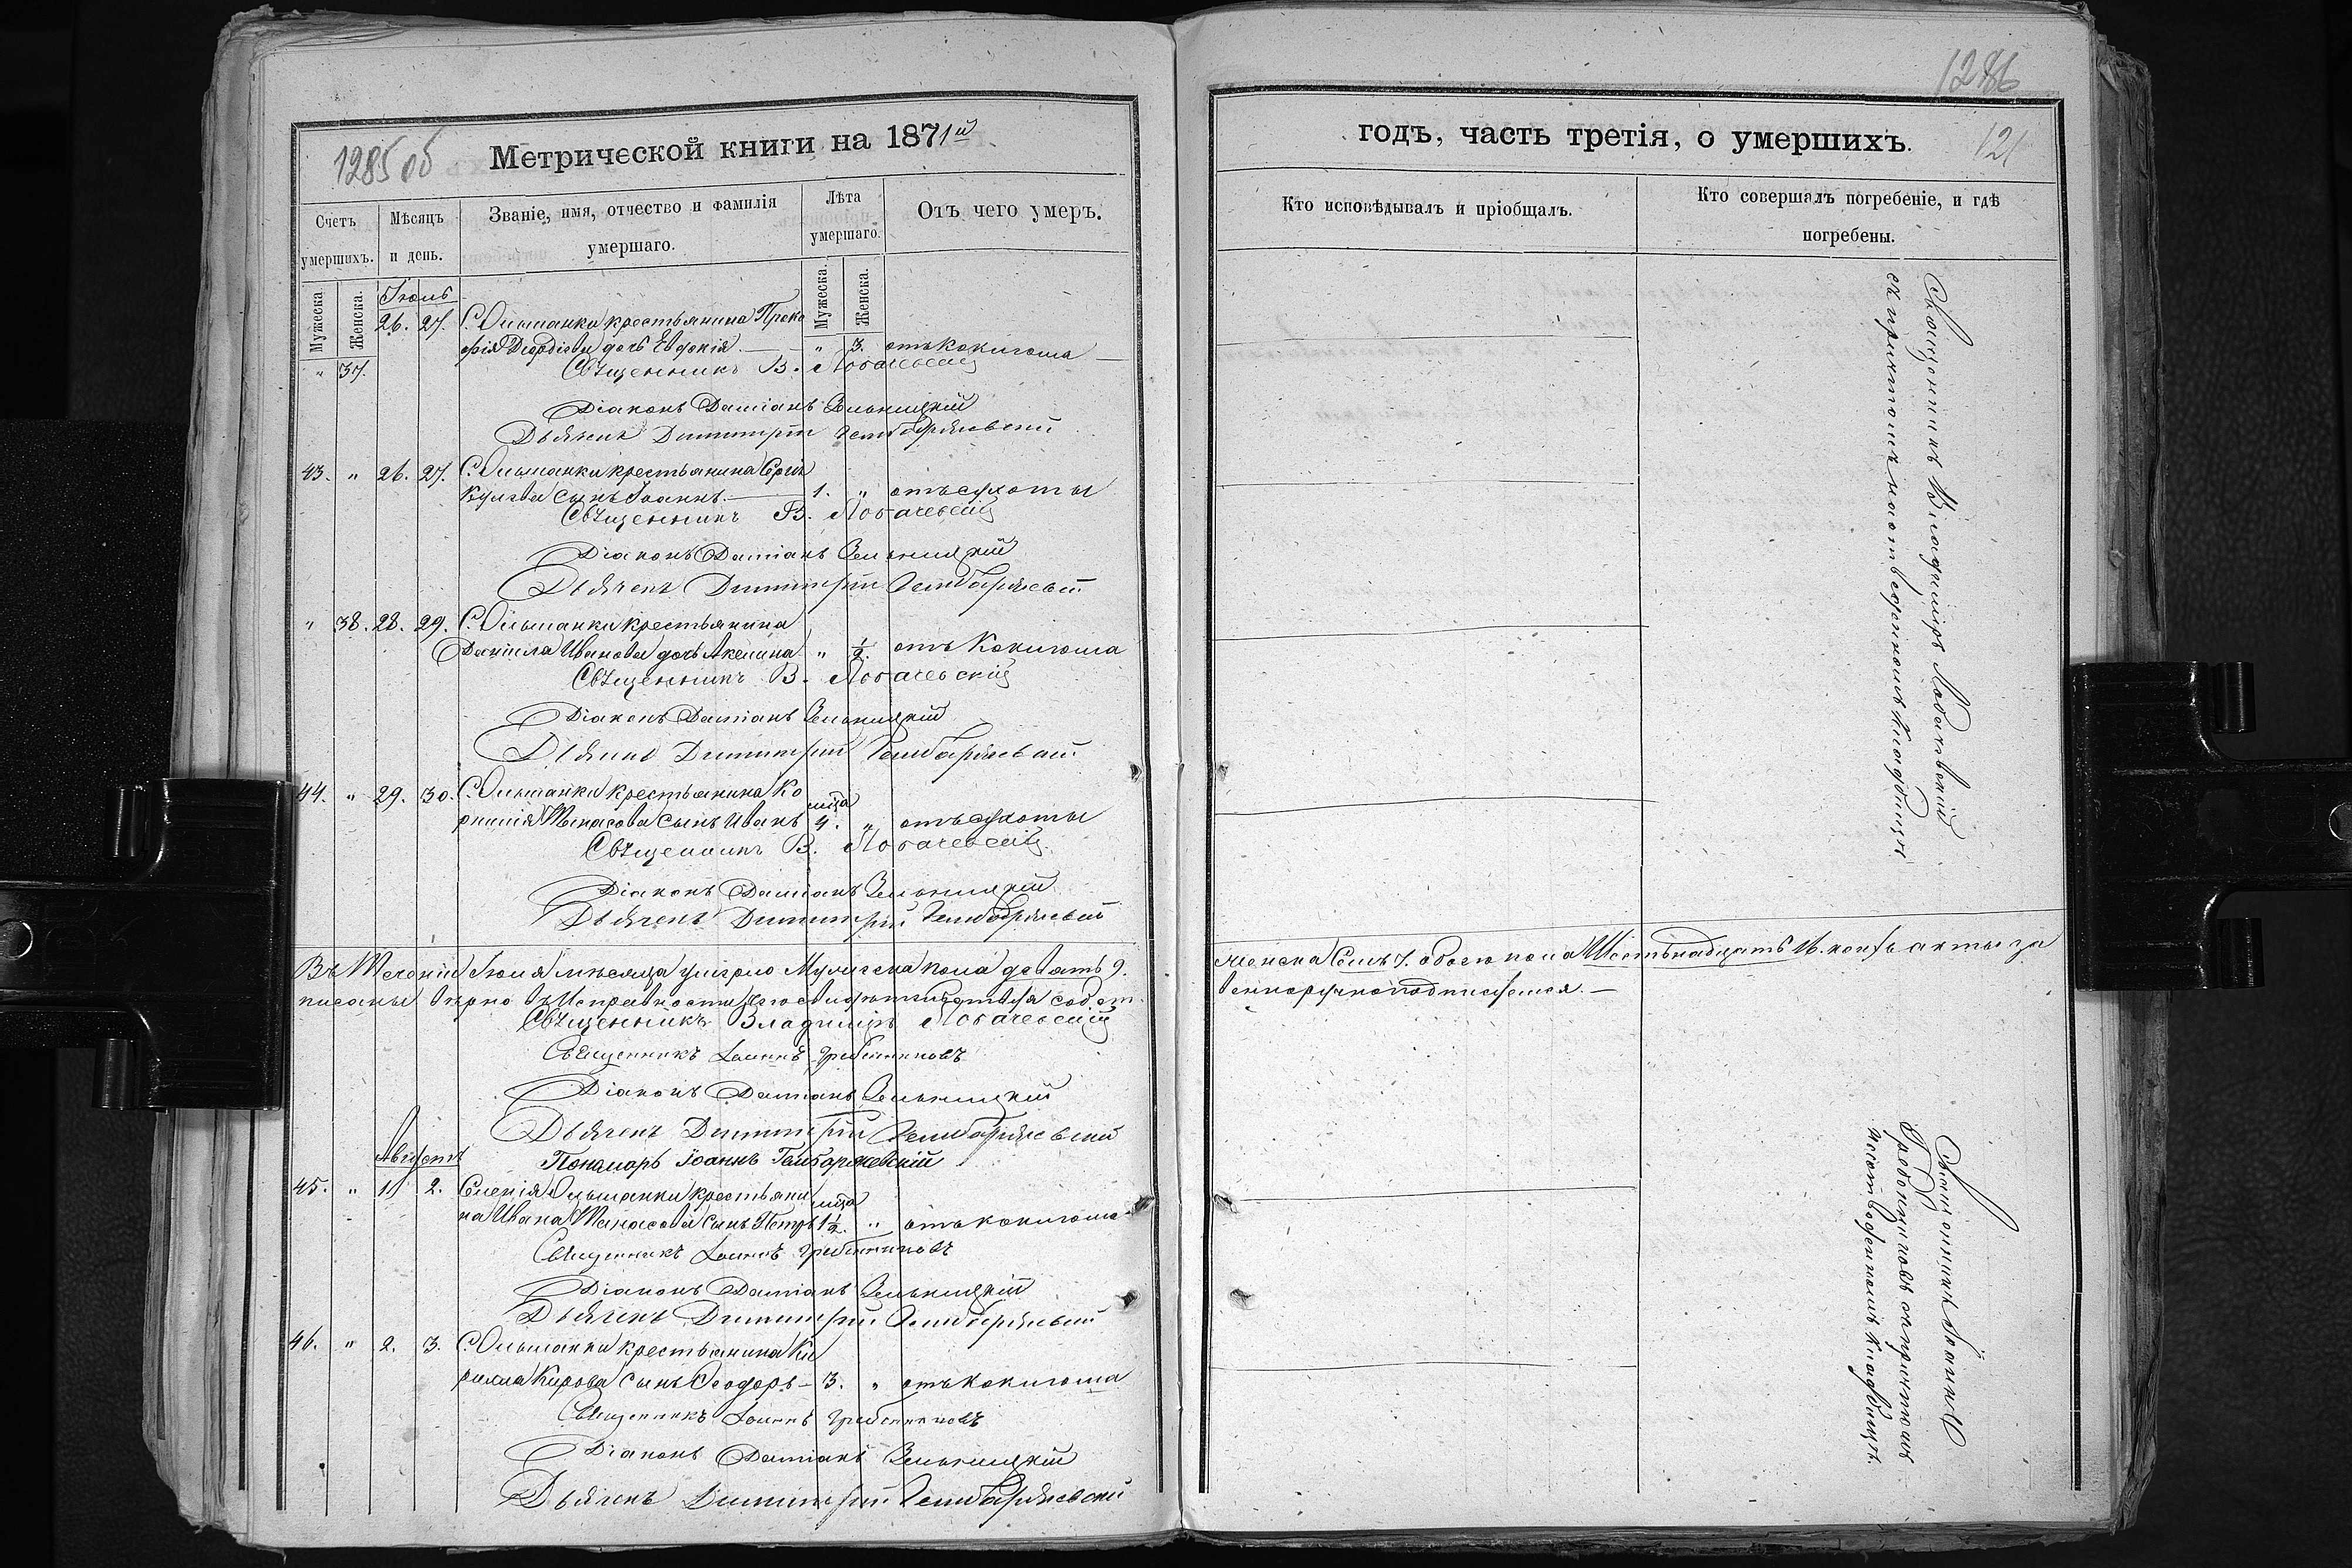 1285 об
Метрической книги на 1871й
Счетъ умершихъ.
Мѣсяцъ и день.
Званіе, имя, отчество и фамилія умершаго.
Лѣта умершаго.
Отъ чего умеръ.
Мужеска.
Женска.
Мужеска.
Женска.
Іюль
26. 27. С. Ольшанки крестьянина Проко
фія дочь Евдокія. — " 3. отъ коклюша
" 37.
Священникъ В. Лобачевскій
Діаконъ Даміанъ
Дьячекъ Димитрій
43. " 26. 27. С. Ольшанки крестьянина Сергія
сынъ Іоаннъ. — 1. " отъ сухоты
Священникъ В. Лобачевскій
Діаконъ Даміанъ
Дьячекъ Димитрій
" 38. 28. 29. С. Ольшанки крестьянина
Даніила Иванова дочь Акелина " ½. отъ Коклюша
Священникъ В. Лобачевскій
Діаконъ Даміанъ
Дьячекъ Димитрій
44. " 29. 30. С. Ольшанки крестьянина Ко
рнилія Танасова сынъ Иванъ мѣца 4. " отъ сухоты
Священникъ В. Лобачевскій
Діаконъ Даміанъ
Дьячекъ Димитрій
Въ теченіи Іюля мѣсяца умерло Мужеска пола девять 9.
писаны вѣрно въ исправности чего
Священникъ Владиміръ Лобачевскій
Священникъ Іоаннъ Гребенниковъ
Діаконъ Даміанъ
Дьячекъ Димитрій
Пономарь Іоаннъ
Августъ
45. " 1 2. Селенія Ольшанки крестьяни
на Ивана Танасова сынъ Петръ мѣца 1½. " отъ коклюша
Священникъ Іоаннъ Гребенниковъ
Діаконъ Даміанъ
Дьячекъ Димитрій
46. " 2. 3. С. Ольшанки крестьянина Ки
рилла Кирова сынъ Ѳеодоръ — 3. " отъ Коклюша
Священникъ Іоаннъ Гребенниковъ
Діаконъ Даміанъ
Дьячекъ Димитрій
1286
годъ, часть третія, о умершихъ.
121
Кто исповѣдывалъ и пріобщалъ.
Кто совершалъ погребеніе, и гдѣ погребены.
Священникъ Владиміръ Лобачевскій
съ причтомъ на отведенномъ кладбищѣ
женска Семь 7. обоего пола Шестьнадцать 16. коихъ акты за
венноручно подписуемся. —
Священникъ Іоаннъ
Гребенниковъ съ причтомъ
на отведенномъ кладбищѣ.